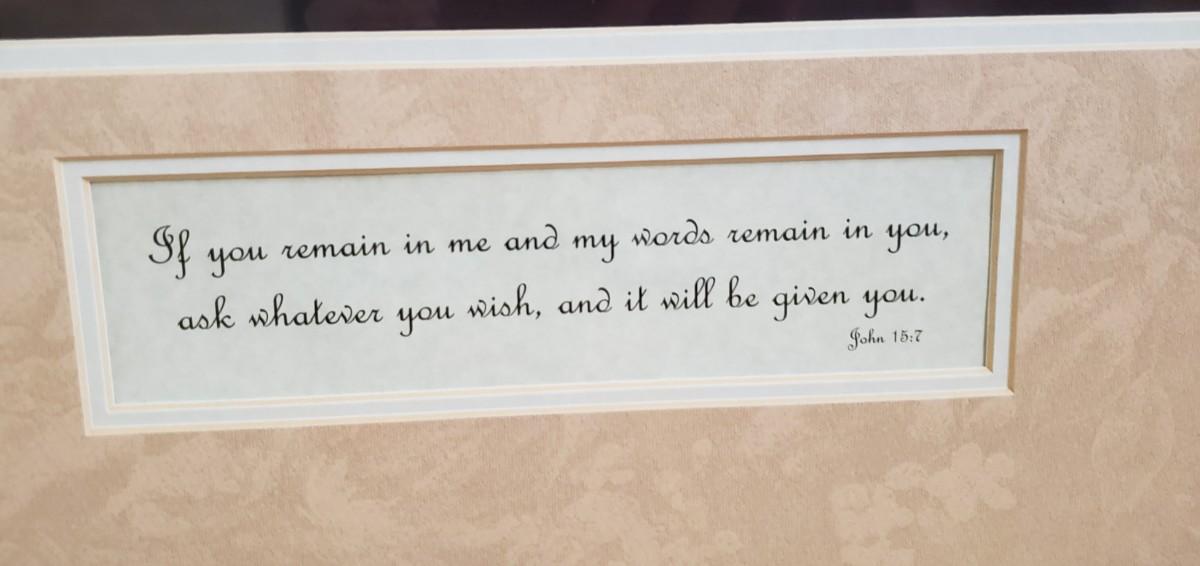 If you remain in me and my words remain in you,
ask whatever you wish, and it will be given you.
John 15:7